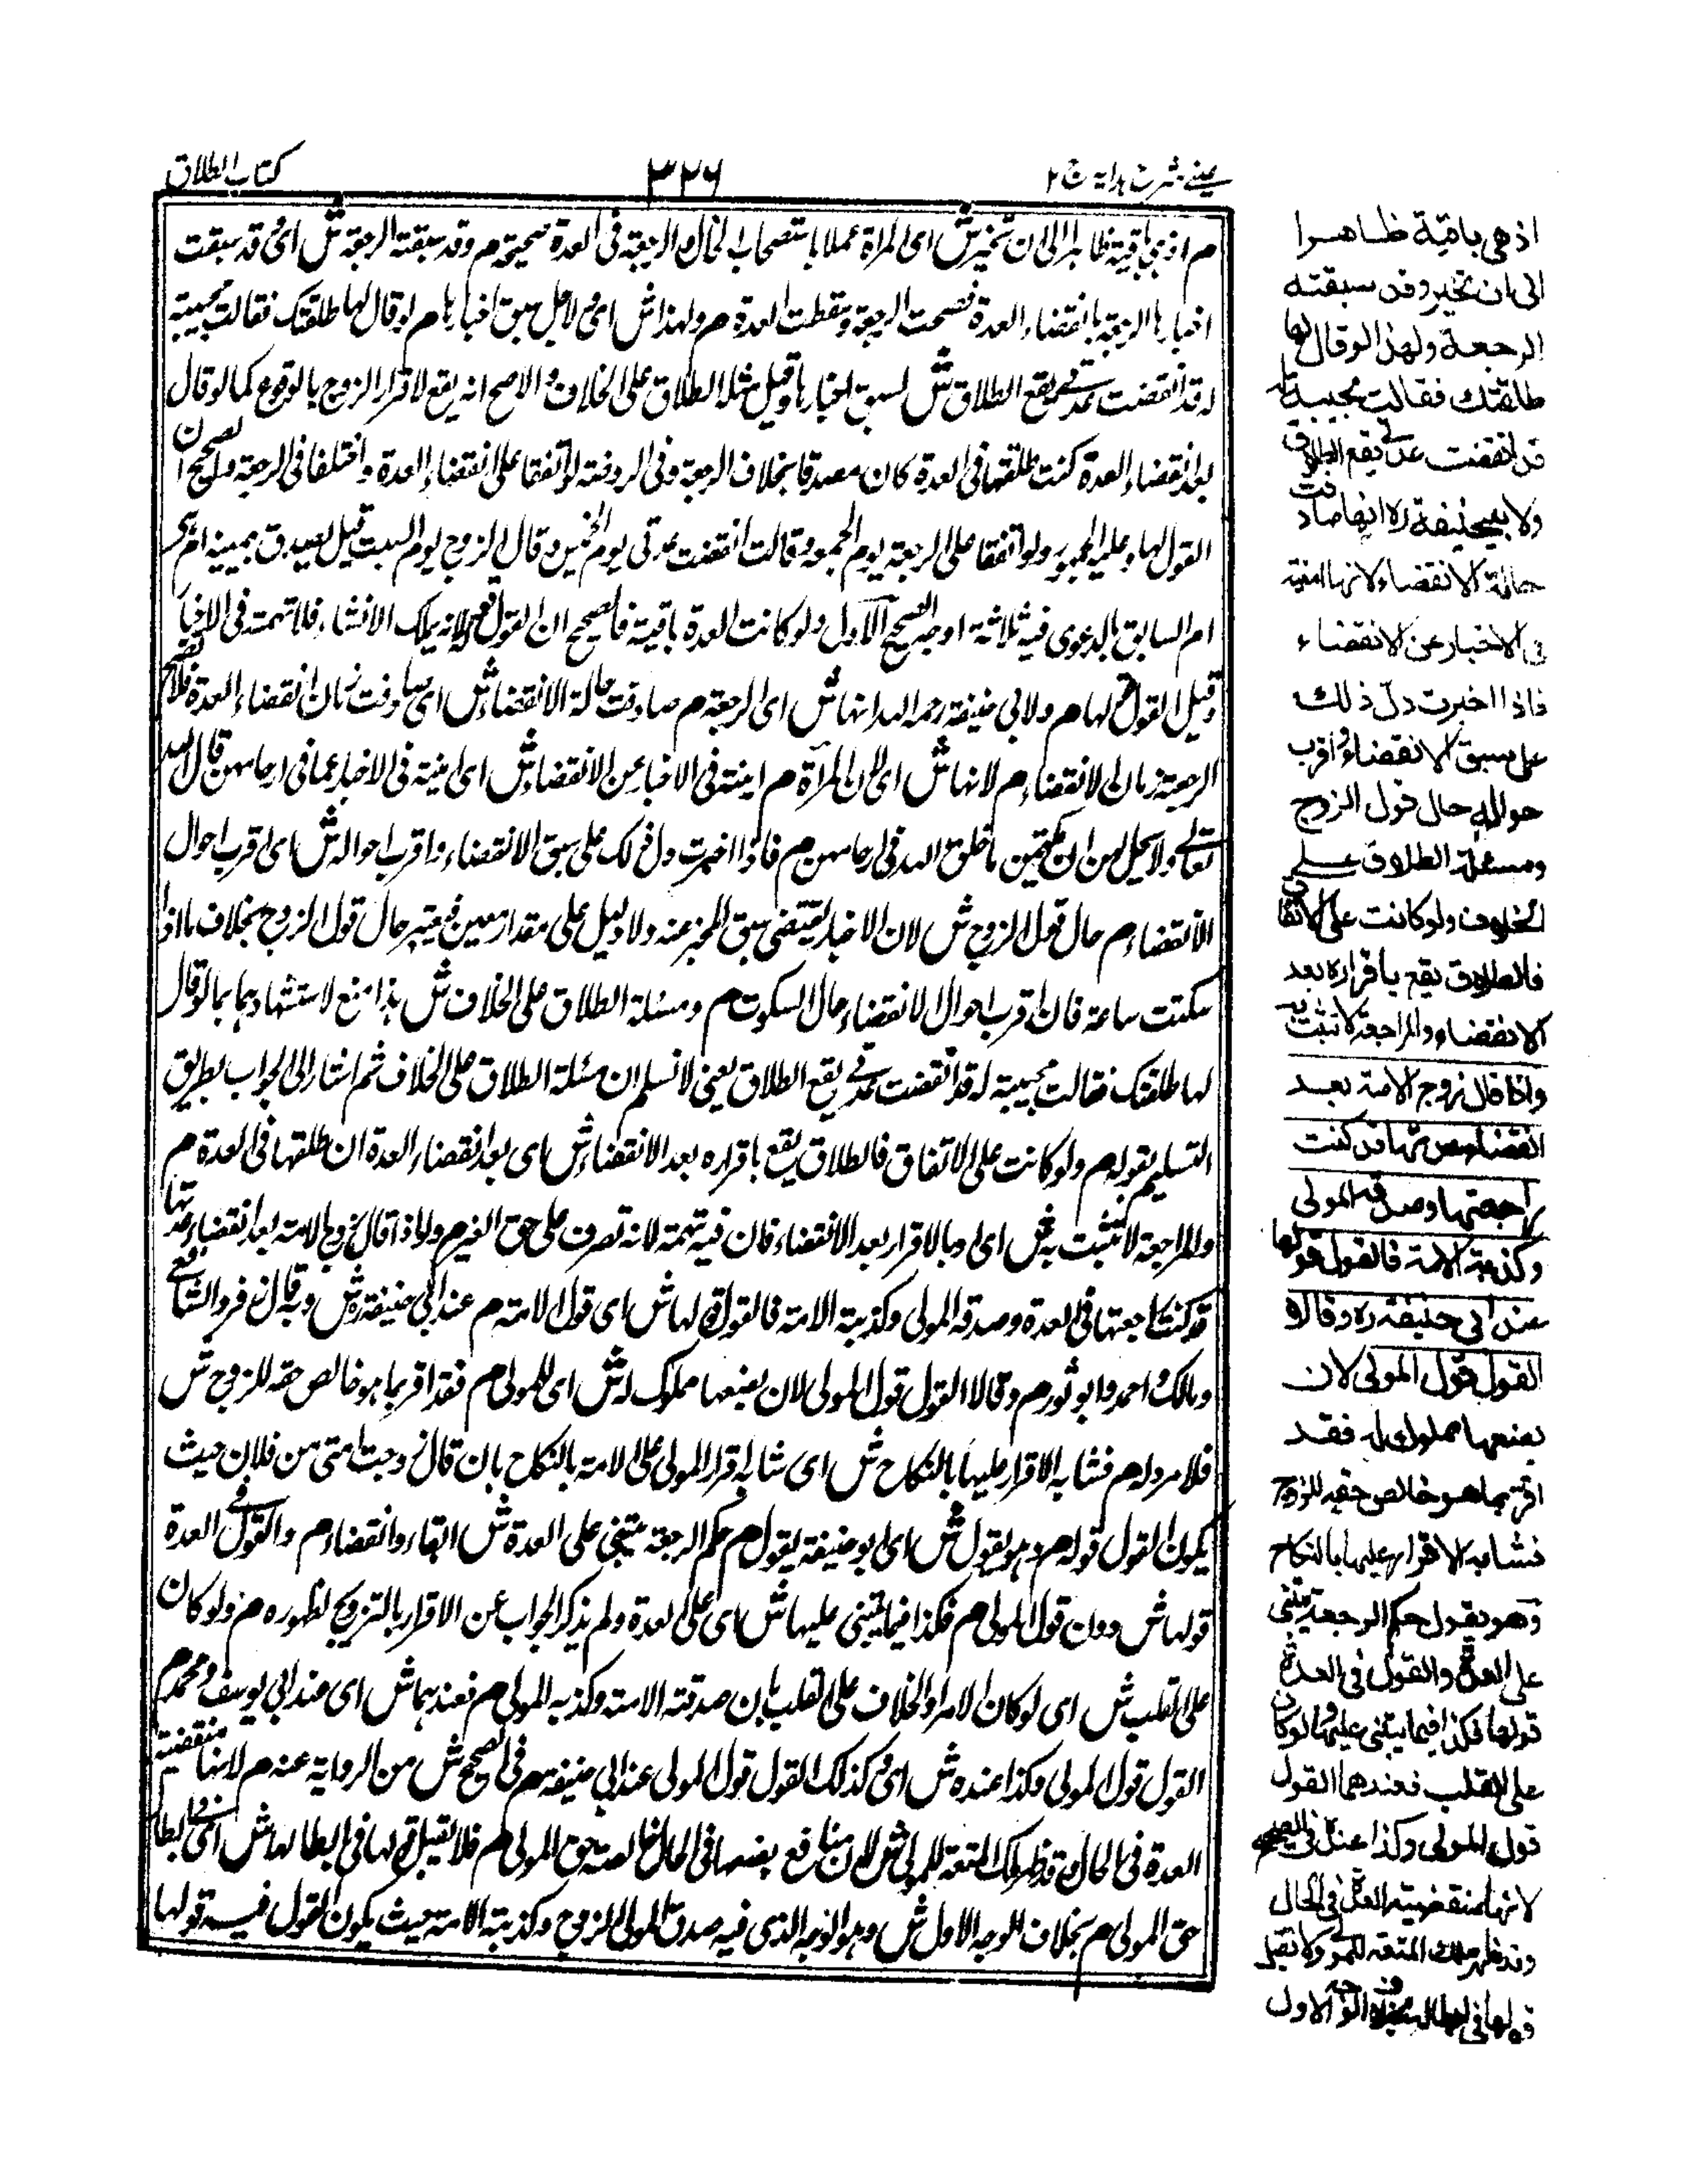 عینی شرح ہدایہ ج ۲
۳۲۶
كتاب الطلاق
م اذ هي باقية ظاهرا الى ان تخبر ش اى المرأة عملا باستصحاب الحال والرجعة فى العدة صحيحة م وقد سبقته الرجعة ش اى قد سبقت
اخبارها الرجعة بانقضاء العدة فصحت الرجعة وسقطت العدة م ولهذا ش اى ولاجل سبق اخبارها م لو قال لها طلقتك فقالت مجيبة
له قد انقضت عدتى يقع الطلاق ش لسبق اخبارها وقيل مسئلة الطلاق على الخلاف والاصح انه يقع لاقرار الزوج بالوقوع كما لو قال
بعد انقضاء العدة كنت طلقتها فى العدة كان مصدقا بخلاف الرجعة وفى الروضة لو اتفقا على انقضاء العدة واختلفا فى الرجعة فالصحيح ان
القول لها وعليه الجمهور ولو اتفقا على الرجعة يوم الجمعة وقالت انقضت عدتى يوم الخميس وقال الزوج يوم السبت قيل يصدق بيمينه ام هى
ام السابق بالدعوى فيه ثلاثة اوجه الصحيح الاول ولو كانت العدة باقية فالصحيح ان القول قوله لانه يملك الانشاء فلا تهمة فى الاخبار
وقيل القول لها م ولابى حنيفة رحمه الله انها ش اى الرجعة م صادفت حالة الانقضاء ش اى صادفت زمان انقضاء العدة فلا تصح
الرجعة زمان الانقضاء م لانها ش اى لان المرأة م امينة فى الاخبار عن الانقضاء ش اى امينة فى الاخبار عما فى ارحامهن قال الله
تعالى ولا يحل لهن ان يكتمن ما خلق الله فى ارحامهن م فاذا اخبرت دل ذلك على سبق الانقضاء واقرب احواله ش اى اقرب احوال
الانقضاء م حال قول الزوج ش لان الاخبار يقتضى سبق المخبر عنه ولا دليل على مقدار معين فيعتبر حال قول الزوج بخلاف ما اذا
سكتت ساعة فان اقرب احوال الانقضاء حال السكوت م ومسئلة الطلاق على الخلاف ش هذا منع لاستشهادهما بما لو قال
لها طلقتك فقالت مجيبة له قد انقضت عدتى يقع الطلاق يعنى لا نسلم ان مسئلة الطلاق على الخلاف ثم اشار الى الجواب بطريق
التسليم بقوله م ولو كانت على الاتفاق فالطلاق يقع باقراره بعد الانقضاء ش اى بعد انقضاء العدة ان طلقتها فى العدة م
والمراجعة لا تثبت به ش اى بالاقرار بعد الانقضاء فان فيه تهمة لانه تصرف على حق الغير م واذا قال زوج الامة بعد انقضاء عدتها
قد كنت راجعتها فى العدة وصدقه المولى وكذبته الامة فالقول قولها ش اى قول الامة م عند ابى حنيفة ش وبه قال زفر والشافعى
ومالك واحمد وابو ثور م وقالا القول قول المولى لان بضعها مملوك له ش اى للمولى م فقد اقر بما هو خالص حقه للزوج ش
فلا مرد له م فشابه الاقرار عليها بالنكاح ش اى شابه اقرار المولى على الامة بالنكاح بان قال زوجت امتى من فلان حيث
يكون القول قوله م وهو يقول ش اى ابو حنيفة يقول م حكم الرجعة يبتنى على العدة ش ابقاء وانقضاء م والقول فى العدة
قولها ش دون قول المولى م فكذا فيما يبتنى عليها ش اى على العدة ولم يذكر الجواب عن الاقرار بالتزويج لظهوره م ولو كان
على القلب ش اى لو كان الامر والخلاف على القلب بان صدقته الامة وكذبه المولى م فعندهما ش اى عند ابى يوسف ومحمد م
القول قول المولى وكذا عنده ش اى وكذلك القول قول المولى عند ابى حنيفة م فى الصحيح ش من الرواية عنه م لانها منقضية
العدة فى الحال وقد ظهر ملك المتعة للمولى ش لان منافع بضعها فى الحال خالصة حق المولى م فلا يقبل قولها فى ابطالها ش اى فى ابطال
حق المولى م بخلاف الوجه الاول ش وهو الوجه الذى فيه صدق المولى الزوج وكذبته الامة حيث يكون القول فيه قولها
اذ هى باقية ظاهرا
الى ان تخبر وقد سبقته
الرجعة ولهذا لو قال لها
طلقتك فقالت مجيبة له
قد انقضت عدتى يقع الطلاق
ولابى حنيفة ره انها صادفت
حالة الانقضاء لانها امينة
فى الاخبار عن الانقضاء
فاذا اخبرت دل ذلك
على سبق الانقضاء واقرب
احواله حال قول الزوج
ومسئلة الطلاق على
الخلاف ولو كانت على الاتفاق
فالطلاق يقع باقراره بعد
الانقضاء والمراجعة لا تثبت به
واذا قال زوج الامة بعد
انقضاء عدتها قد كنت
راجعتها وصدقه المولى
وكذبته الامة فالقول قولها
عند ابى حنيفة ره وقالا
القول قول المولى لان
بضعها مملوك له فقد
اقر بما هو خالص حقه للزوج
فشابه الاقرار عليها بالنكاح
وهو يقول حكم الرجعة يبتنى
على العدة والقول فى العدة
قولها فكذا فيما يبتنى عليها ولو كان
على القلب فعندهما القول
قول المولى وكذا عنده فى الصحيح
لانها منقضية العدة فى الحال
وقد ظهر ملك المتعة للمولى ولا تقبل
قولها فى ابطاله بخلاف الوجه الاول